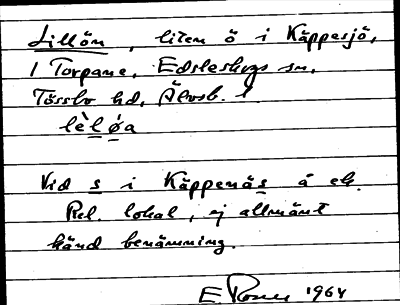 Lillön, liten ö i Käppesjö,
1 Torpane, Edsleskogs sn,
Tössbo hd, Älvsb. l
lèl ǿa
Vid s i Käppenäs å ek.
Rel. lokal, ej allmänt
känd benämning.
E Rosen 1964